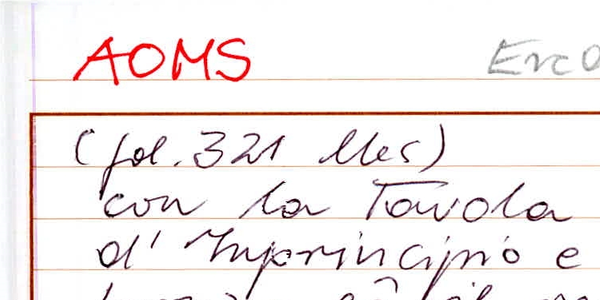 AOMS
(fol. 321 Mes)
con la Tavola
d' Inprincipio e